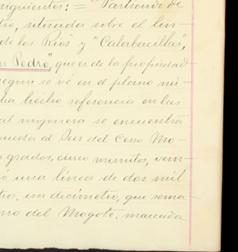 siguientes: = "Partiendo de
situada sobre el lin-
de los Rios y "Calabacillas",
Pedro", que es de la propiedad
segun se vé en el plano
ha hecho referencia en las
al mojonera se encuentra
puesta al Sur del Cerro Mo-
grados, cinco minutos, vein-
ó una linea de dos mil
tros, un decimetro, que toma
rro del Mogote, marcada